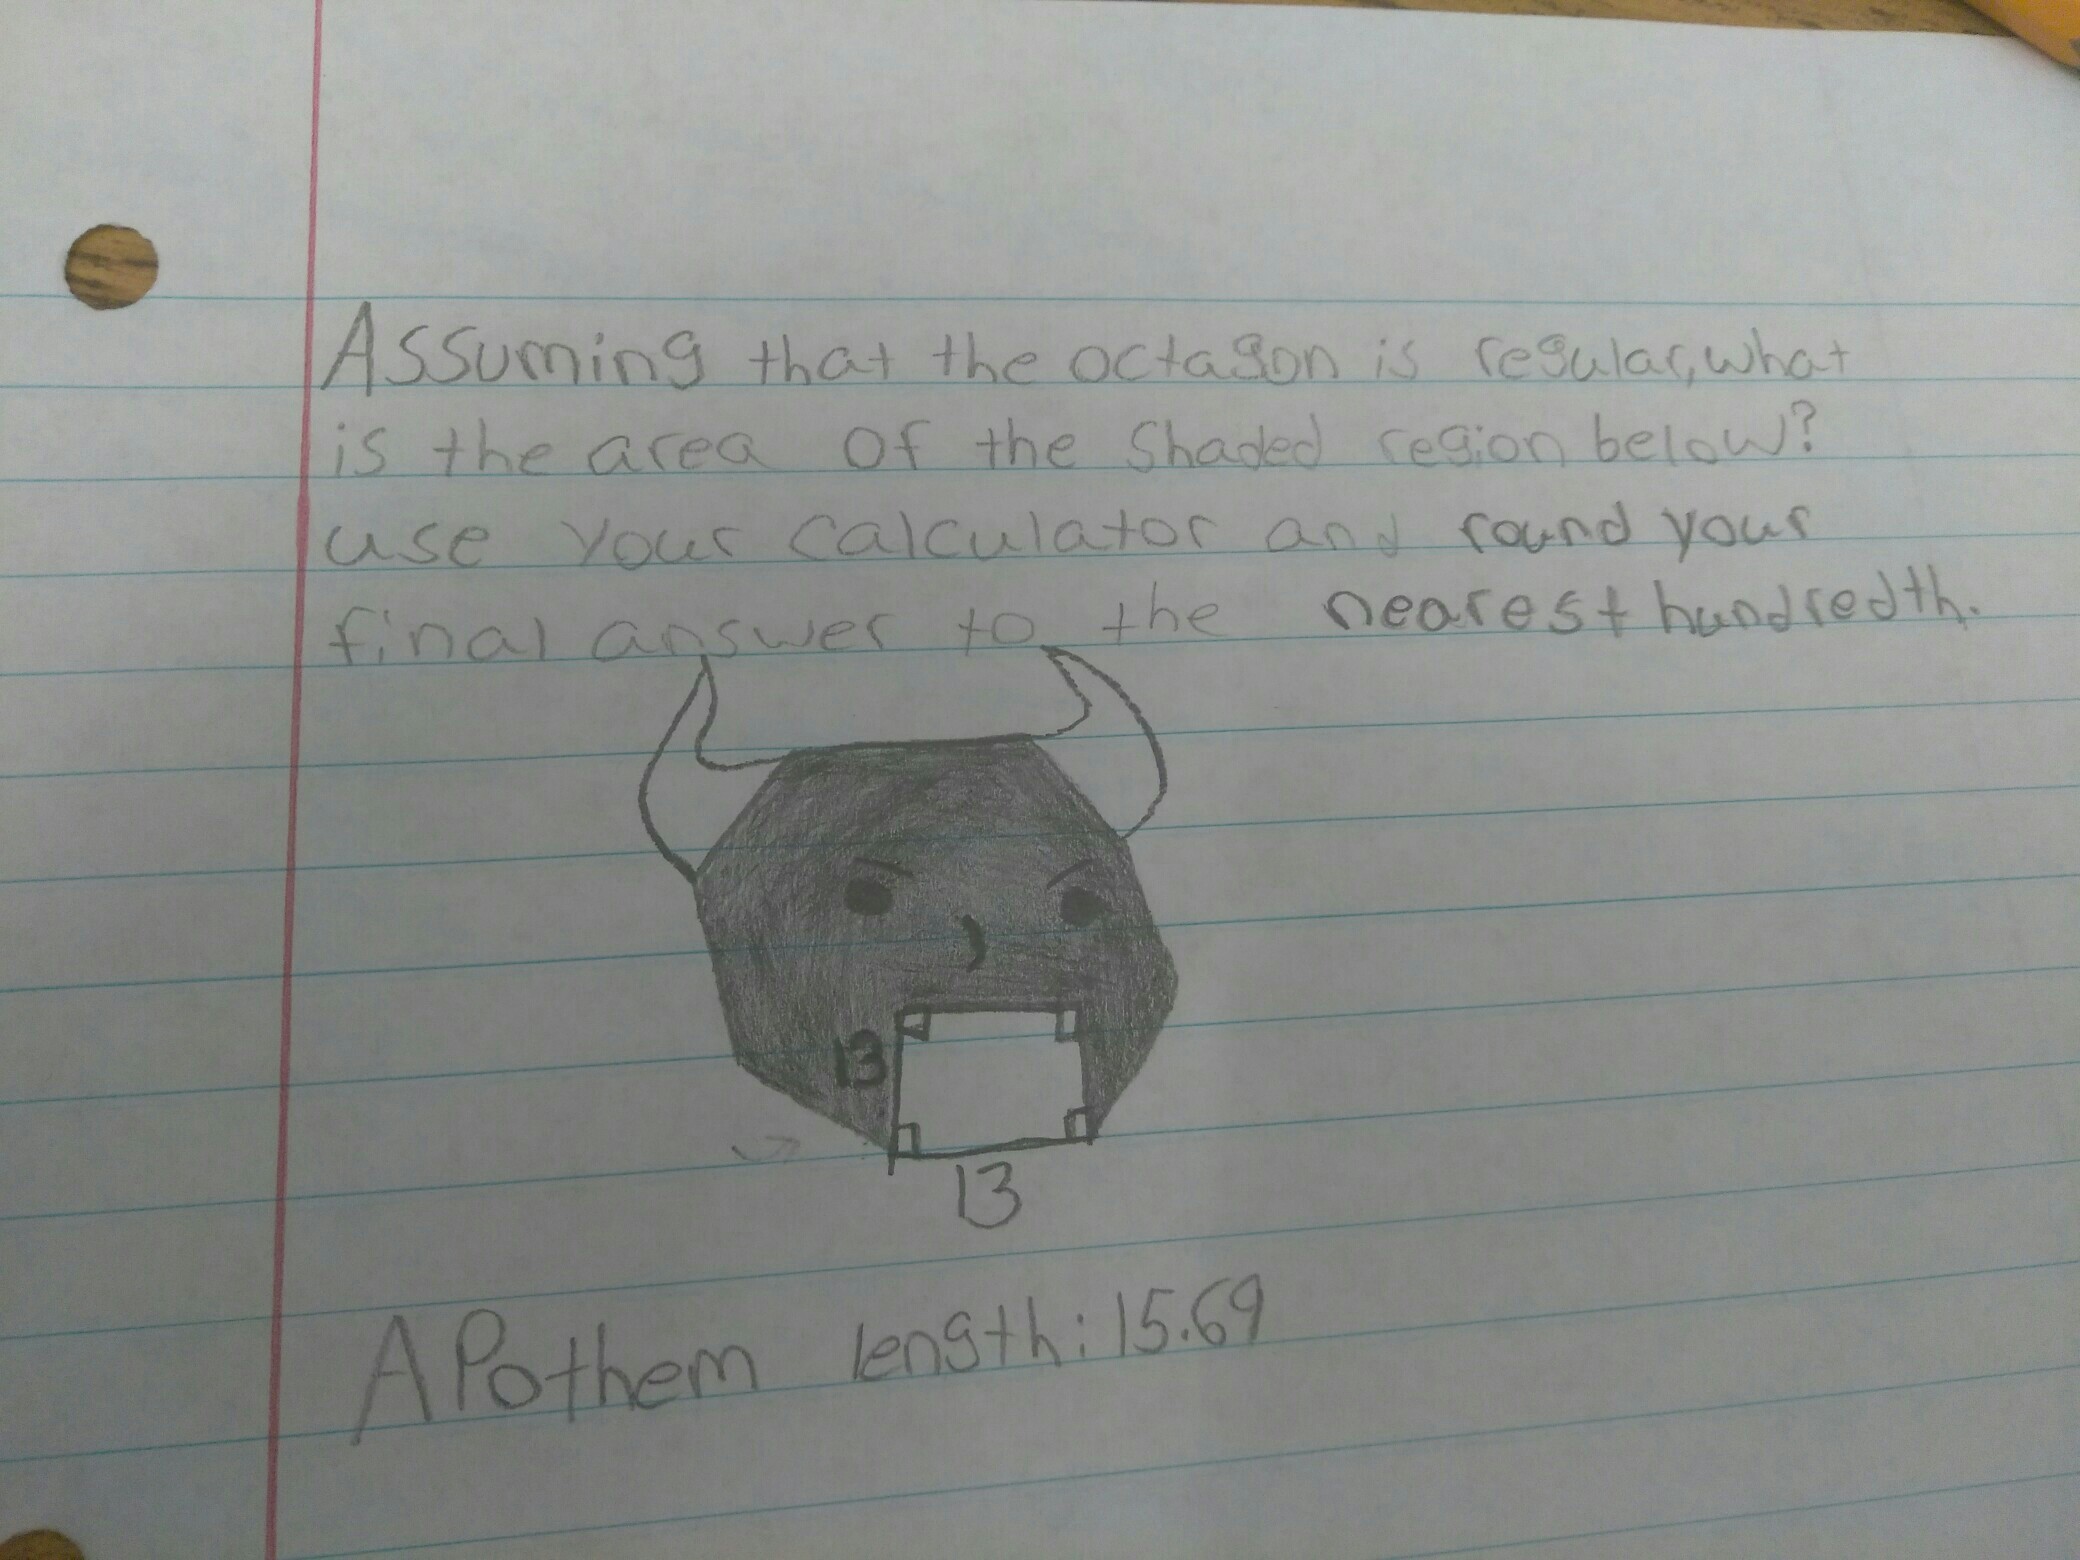 Assuming that the octagon is regular, what
is the area of the shaded region below?
use your calculator and round your
final answer to the nearest hundredth.
13
13
APothem length: 15.69